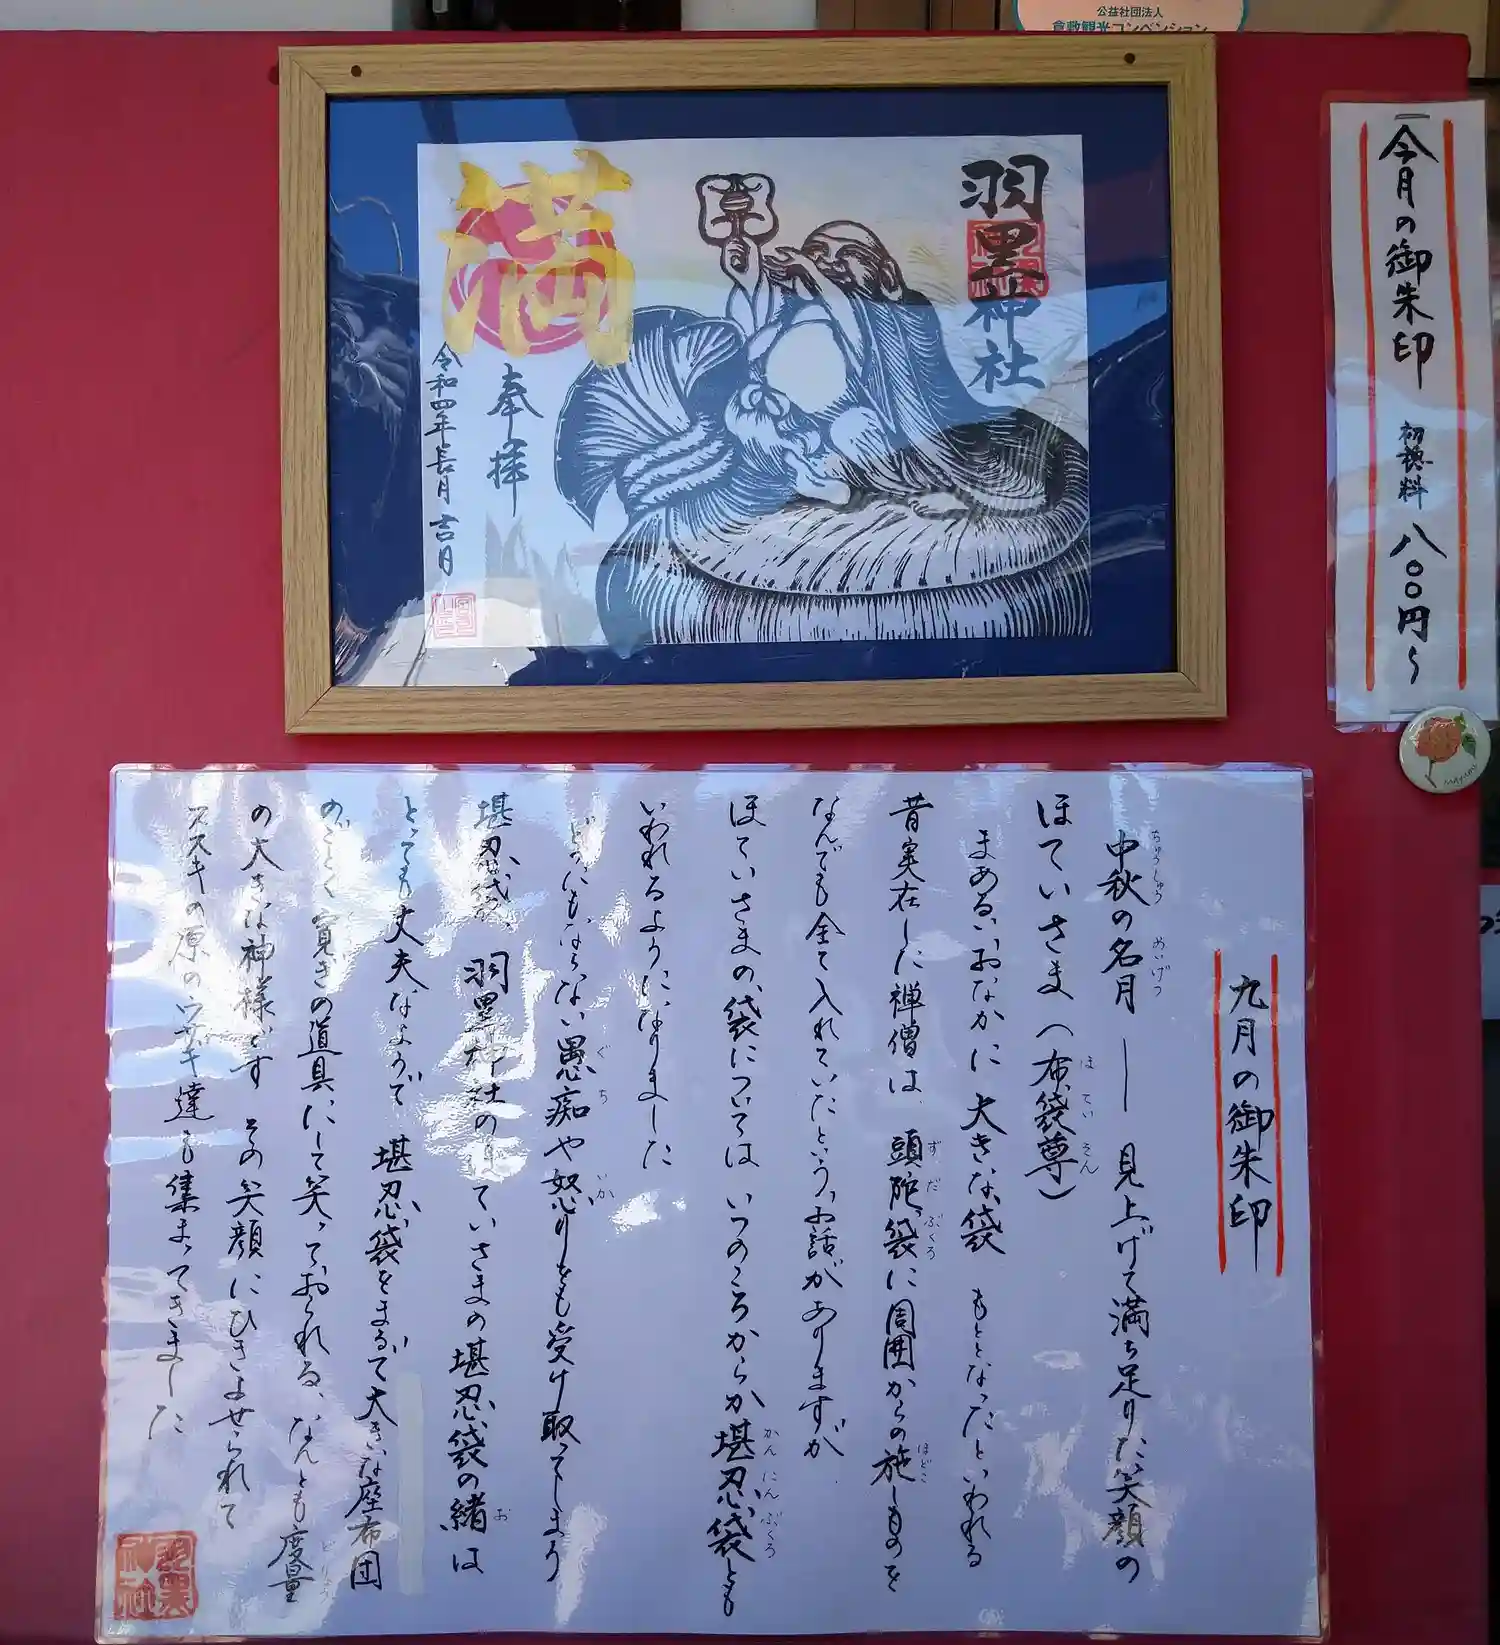 公益社団法人
倉敷観光コンベンション
今月の御朱印 初穂料 八〇〇円〜
羽黒神社
満
奉拝
令和四年長月吉月
九月の御朱印
中秋の名月 ― 見上げて満ち足りた笑顔の
ちゅうしゅう めいげつ
ほていさま（布袋尊）
ほてい そん
まあるいおなかに 大きな袋 もととなったといわれる
昔実在した禅僧は、頭陀袋に周囲からの施しものを
ずだ ぶくろ ほどこ
なんでも全て入れていたというお話がありますが
ほていさまの袋については いつのころからか堪忍袋とも
かんにんぶくろ
いわれるようになりました
どうにもならない愚痴や怒りをも受け取ってしまう
ぐち いか
堪忍袋、羽黒神社のほていさまの堪忍袋の緒は
お
とっても丈夫なようで 堪忍袋をまるで大きな座布団
のごとく寛ぎの道具にして笑っておられる、なんとも度量
どりょう
の大きな神様です その笑顔にひきよせられて
ススキの原のウサギ達も集まってきました
羽黒神社